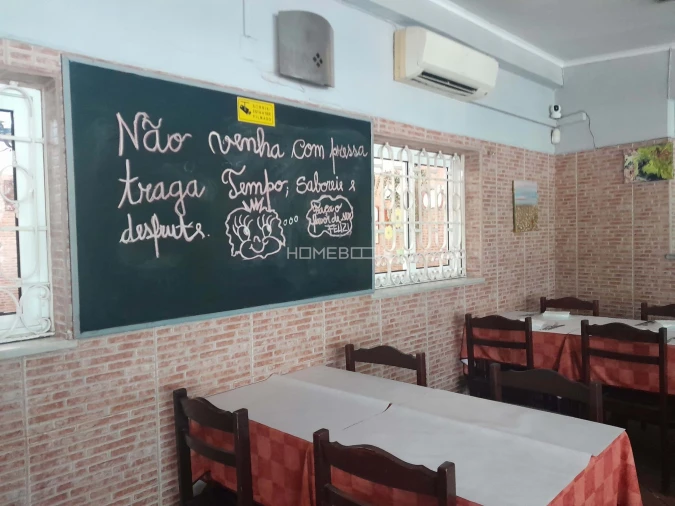 Não venha com pressa
traga Tempo, Saboreie e
desfrute.
Faça o
favor de ser
FELIZ!
HOMEBOOK